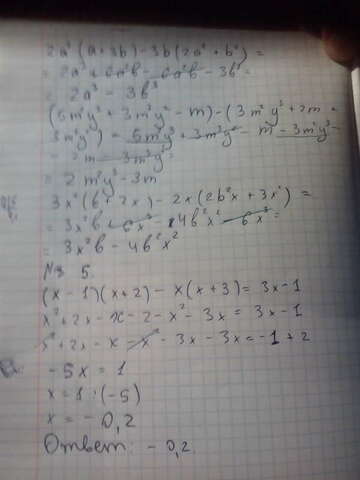 2a²(a+3b)-3b(2a²+b²)=
= 2a³+6a²b-6a²b-3b³=
= 2a³-3b³
(5m²y³+3m²y²-m)-(3m²y³+2m+
3m²y²)= 5m²y³+3m²y²-m-3m²y³-
-2m-3m²y²=
= 2m²y³-3m
3x²(b+2x)-2x(2b²x+3x²)=
= 3x²b+6x³-4b²x²-6x³=
= 3x²b-4b²x²
№ 5.
(x-1)(x+2)-x(x+3)=3x-1
x²+2x-x-2-x²-3x=3x-1
x²+2x-x-x²-3x-3x=-1+2
-5x=1
x=1:(-5)
x=-0,2
Ответ: -0,2.